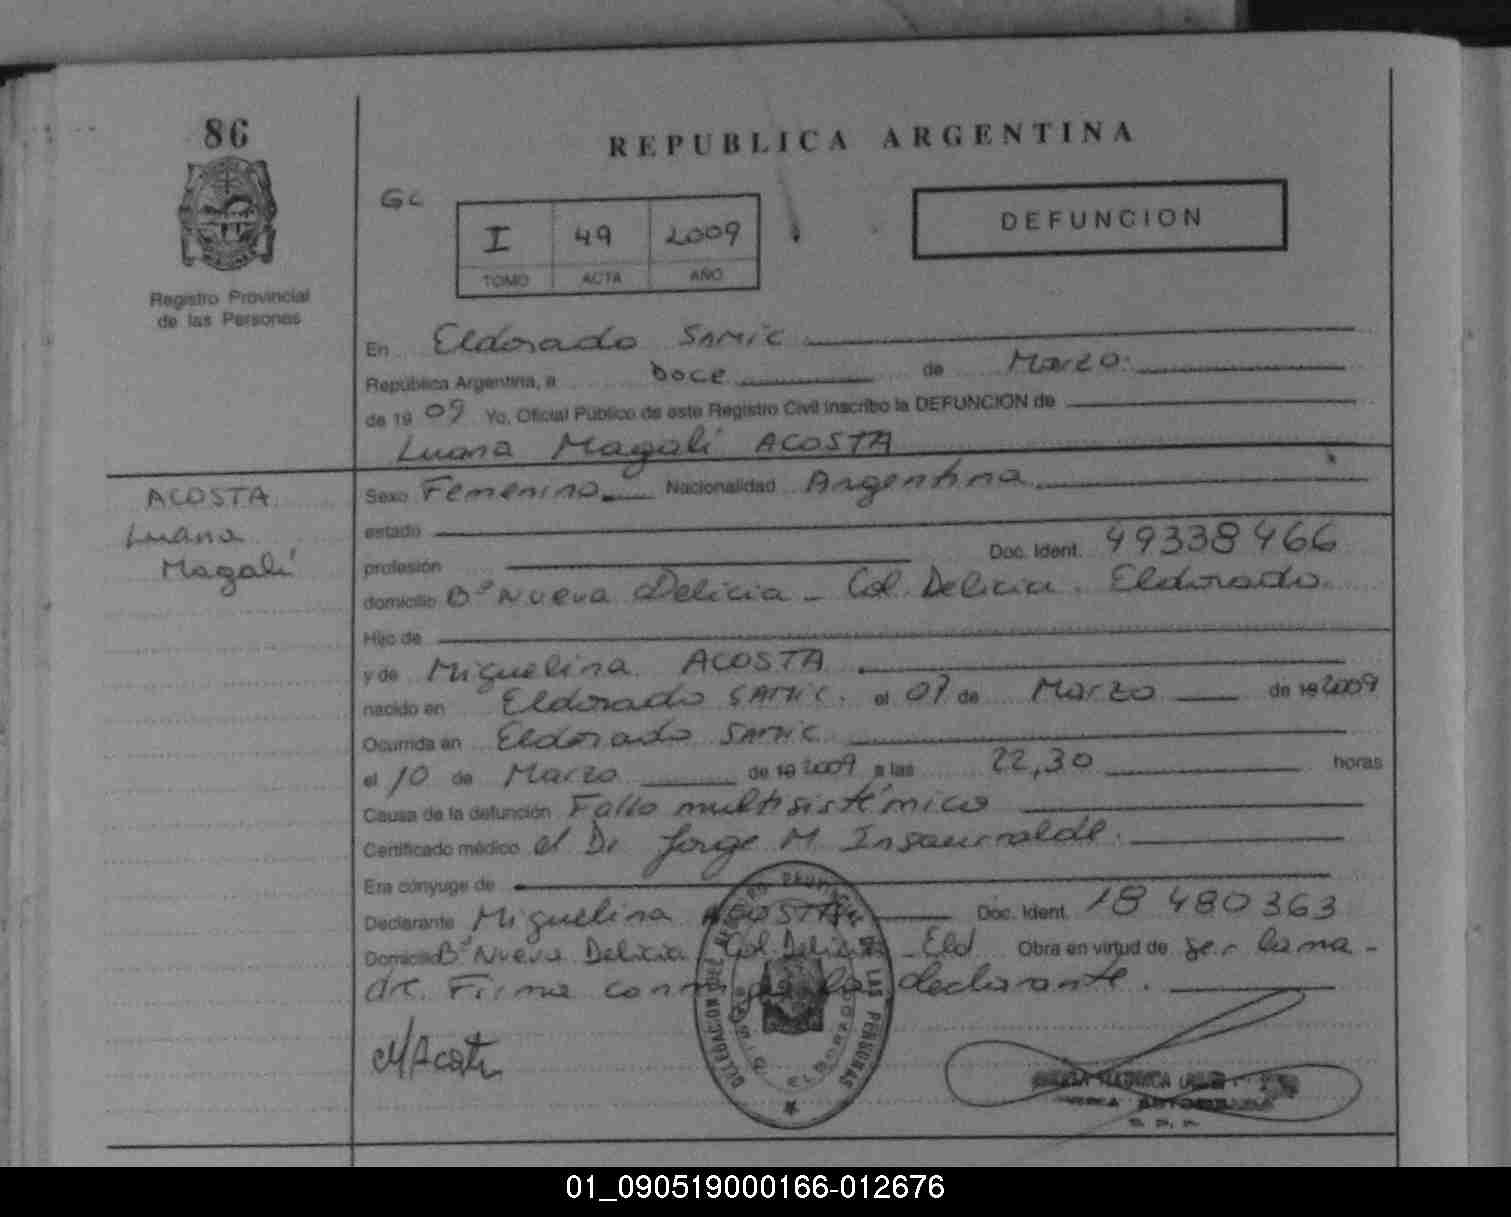 86
REPUBLICA ARGENTINA
GC
I 49 2009
TOMO ACTA AÑO
DEFUNCION
Registro Provincial
de las Personas
En Eldorado SAMIC
República Argentina, a Doce de Marzo
de 19 09 Yo, Oficial Público de este Registro Civil inscribo la DEFUNCION de
Luana Magalí ACOSTA
ACOSTA
Luana
Magalí
Sexo Femenino Nacionalidad Argentina
estado
profesión Doc. Ident. 49338466
domicilio Bº Nueva Delicia - Col. Delicia. Eldorado
Hijo de
y de Miguelina ACOSTA
nacido en Eldorado SAMIC. el 07 de Marzo de 19 2009
Ocurrida en Eldorado SAMIC
el 10 de Marzo de 19 2009 a las 22,30 horas
Causa de la defunción Fallo multisistémico
Certificado médico el Dr Jorge M. Insaurralde.
Era cónyuge de
Declarante Miguelina ACOSTA Doc. Ident. 18 480363
Domicilio Bº Nueva Delicia Col. Delicia - Eld. Obra en virtud de ser la ma-
dre. Firma conmigo la declarante.
MAcosta
DELEGACION DEL REGISTRO PROVINCIAL DE LAS PERSONAS
ELDORADO
01_090519000166-012676